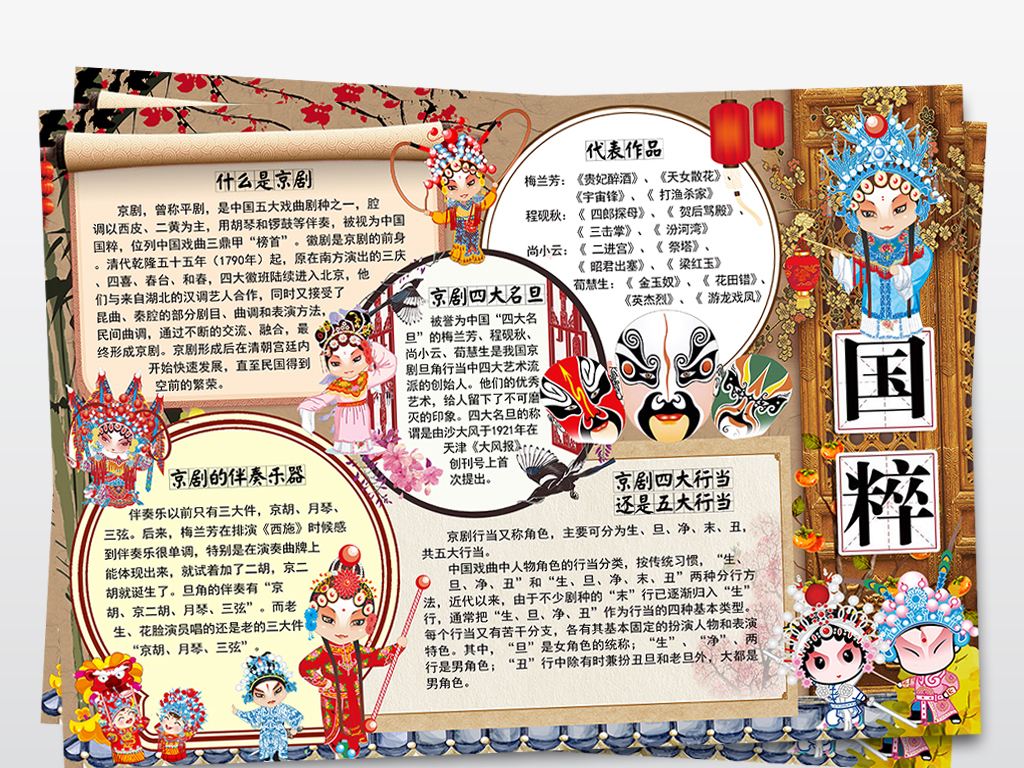 什么是京剧
京剧，曾称平剧，是中国五大戏曲剧种之一，腔
调以西皮、二黄为主，用胡琴和锣鼓等伴奏，被视为中国
国粹，位列中国戏曲三鼎甲“榜首”。徽剧是京剧的前身
。清代乾隆五十五年（1790年）起，原在南方演出的三庆
、四喜、春台、和春，四大徽班陆续进入北京，他
们与来自湖北的汉调艺人合作，同时又接受了
昆曲、秦腔的部分剧目、曲调和表演方法，
民间曲调，通过不断的交流、融合，最
终形成京剧。京剧形成后在清朝宫廷内
开始快速发展，直至民国得到
空前的繁荣。
代表作品
梅兰芳：《贵妃醉酒》、《天女散花》、
《宇宙锋》、《 打渔杀家》
程砚秋：《 四郎探母》、《 贺后骂殿》、
《 三击掌》、《 汾河湾》
尚小云：《 二进宫》、《 祭塔》、
《 昭君出塞》、《 梁红玉》
荀慧生：《 金玉奴》、《 花田错》、
《英杰烈》、《 游龙戏凤》
京剧四大名旦
被誉为中国“四大名
旦”的梅兰芳、程砚秋、
尚小云、荀慧生是我国京
剧旦角行当中四大艺术流
派的创始人。他们的优秀
艺术，给人留下了不可磨
灭的印象。四大名旦的称
谓是由沙大风于1921年在
天津《大风报》
创刊号上首
次提出。
京剧的伴奏乐器
伴奏乐以前只有三大件，京胡、月琴、
三弦。后来，梅兰芳在排演《西施》时候感
到伴奏乐很单调，特别是在演奏曲牌上
能体现出来，就试着加了二胡，京二
胡就诞生了。旦角的伴奏有“京
胡、京二胡、月琴、三弦”。而老
生、花脸演员唱的还是老的三大件
“京胡、月琴、三弦”。
京剧四大行当
还是五大行当
京剧行当又称角色，主要可分为生、旦、净、末、丑，
共五大行当。
中国戏曲中人物角色的行当分类，按传统习惯，“生、
旦、净、丑”和“生、旦、净、末、丑”两种分行方
法，近代以来，由于不少剧种的“末”行已逐渐归入“生”
行，通常把“生、旦、净、丑”作为行当的四种基本类型。
每个行当又有若干分支，各有其基本固定的扮演人物和表演
特色。其中，“旦”是女角色的统称；“生”、“净”、两
行是男角色；“丑”行中除有时兼扮丑旦和老旦外，大都是
男角色。
国
粹